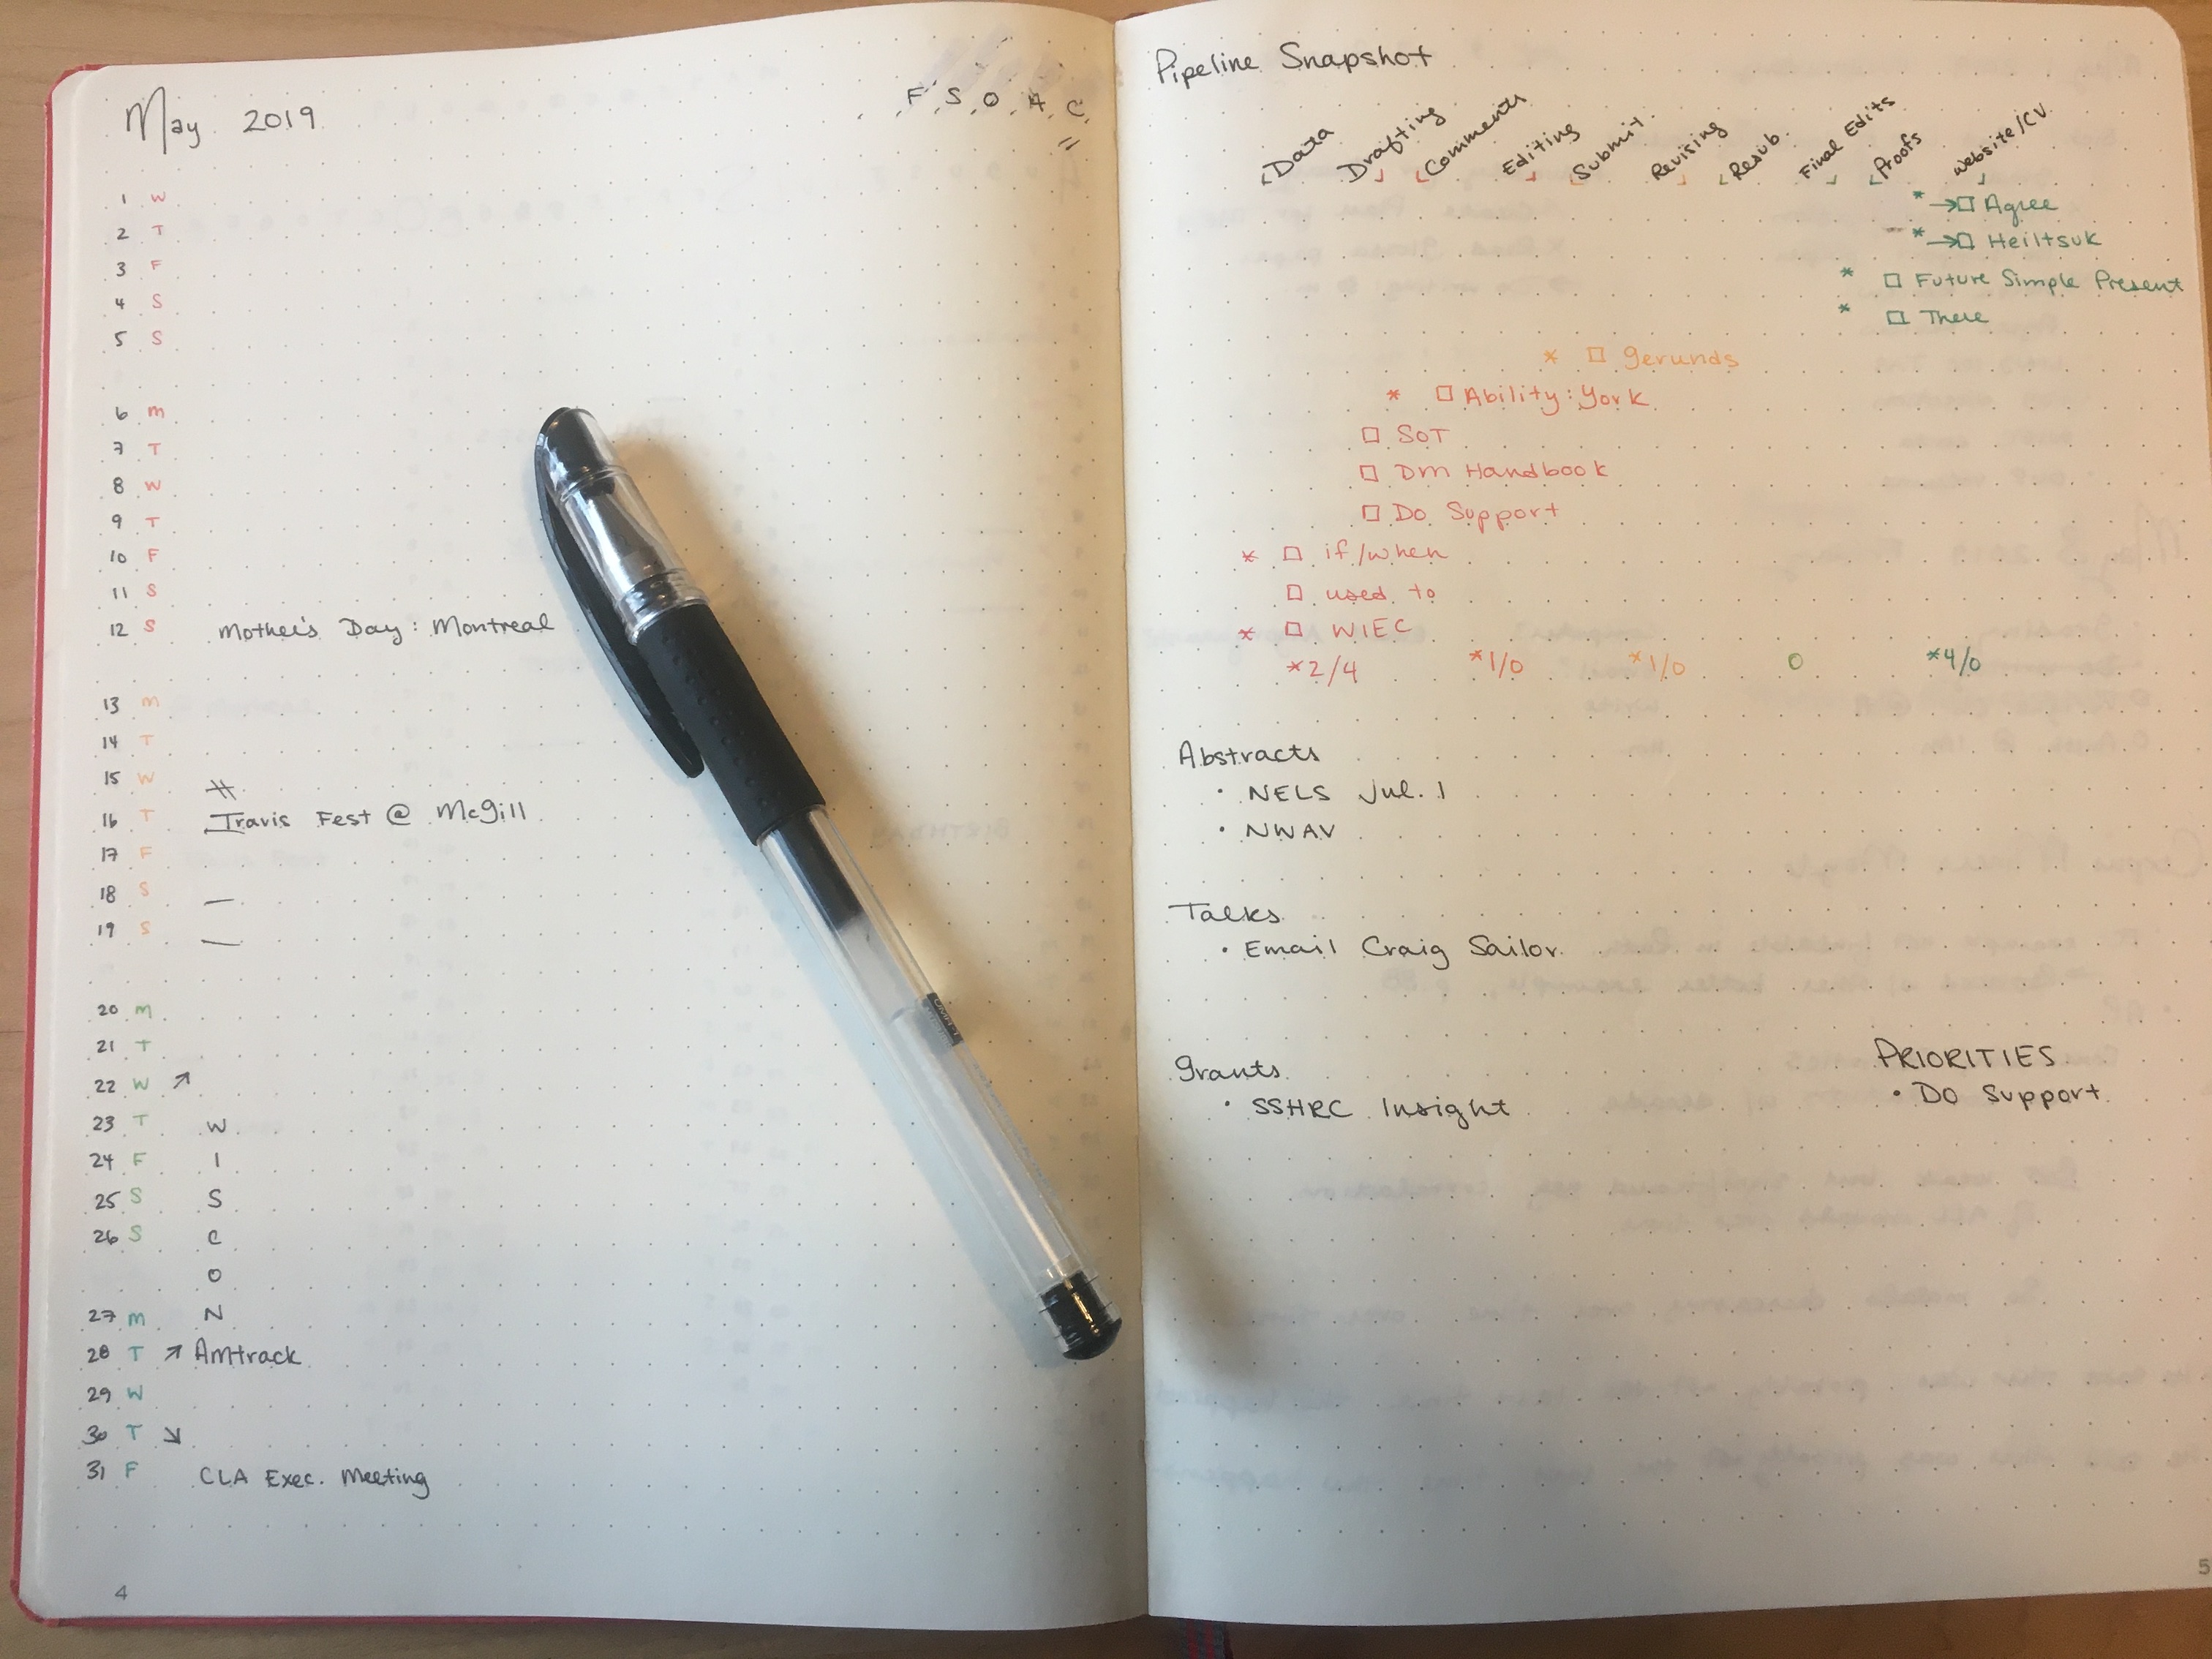 May 2019
F S O A C
1 W
2 T
3 F
4 S
5 S
6 M
7 T
8 W
9 T
10 F
11 S
12 S Mother's Day: Montreal
13 M
14 T
15 W
16 T Travis Fest @ McGill
17 F
18 S
19 S
20 M
21 T
22 W ↗
23 T W
24 F I
25 S S
26 S C
O
27 M N
28 T ↗ Amtrack
29 W
30 T ↘
31 F CLA Exec. Meeting
4
Pipeline Snapshot
Data Drafting Comments Editing Submit. Revising Resub. Final Edits Proofs Website/CV
* → □ Agree
* → □ Heiltsuk
* □ Future Simple Present
* □ There
* □ gerunds
* □ Ability: York
□ SoT
□ DM Handbook
□ Do Support
* □ if/when
□ used to
* □ WIEC
*2/4 *1/0 *1/0 0 *4/0
Abstracts
• NELS Jul. 1
• NWAV
Talks
• Email Craig Sailor
Grants
• SSHRC Insight
PRIORITIES
• DO Support
5